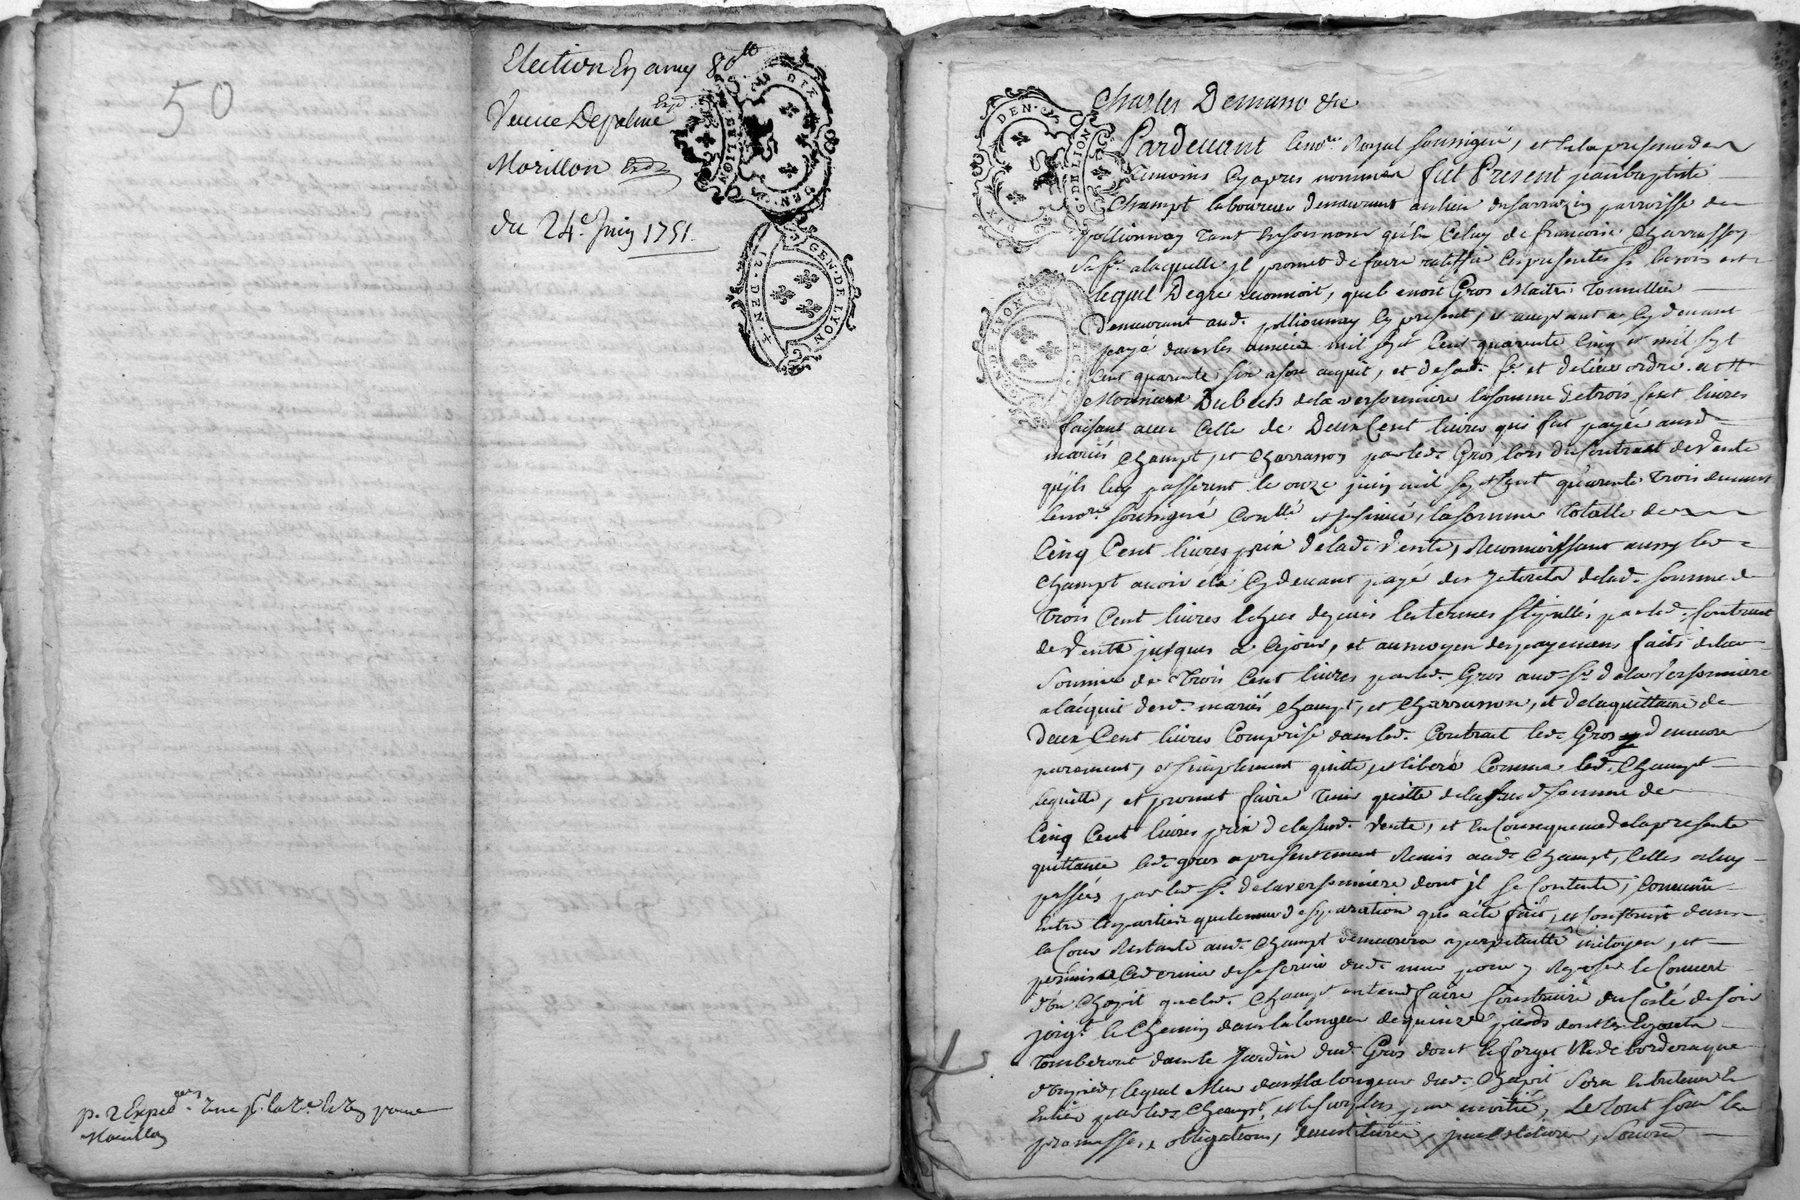 50
Election En amy 80tt
Veuve Depalme Expd
Morillon Expd
du 24e. Juin 1751.
GEN. DE LYON
p. 2 Exped
Morillon
Charles Demasso &c
Pardevant le no.re Royal soussigné, et en la presence des
temoins cy apres nommés fut Present jean baptiste
Champt laboureur demeurant au lieu du sarrazin parroisse de
pollionnay tant en son nom qu'en Celuy de francoise Charrasson
sa f.e a laquelle jl promet de faire ratiffier les presentes
lequel De gré reconnoit, que benoit Gros Maitre Tonnellier
demeurant aud. pollionnay cy present, et acceptant a cy devant
payé dans les années mil sept Cent quarante Cinq et mil sept
Cent quarante six a son acquit, et de sad. f.e et de leur ordre, a
Monsieur Dubech de la versonniere la somme de trois Cent livres
faisant avec Celle de Deux Cent livres qui fut payée ausd.
mariés Champt, et Charrasson par led. Gros lors du Contract de Vente
qu'jls luy passerent le onze juin mil sept Cent quarante Trois devant
le no.re soussigné Conllé et jnsinué, la somme Totalle de
Cinq Cent livres prix de lad. Vente, Reconnoissant aussy led.
Champt avoir été cy devant payé des jnterets de lad. somme de
Trois Cent livres Echus depuis les termes stipullés par led. Contract
de Vente jusques a Ce jour, et au moyen des payemens faits de lad.
somme de Trois Cent livres par led. Gros aud. Sr. de la Versonniere
a l'acquit desd. mariés Champt, et Charrasson, et de la quittance de
Deux Cent livres Comprise dans led. Contract led. Gros en demeure
purement, et simplement quitte, et liberé Comme led. Champt
le quitte, et promet faire Tenir quitte de la susd. somme de
Cinq Cent livres prix de la susd. Vente, et En Consequence de la presente
quittance led. gros a presentement Remis aud. Champt, Celles a luy
passées par led. Sr. de la versonniere dont jl se Contente, Convenu
Entre les parties que le mur de separation qui a été fait, et Construit dans
la Cour Restante aud. Champt demeurera a perpetuitté mitoyen, et
permis a Ce dernier de se servir dud. mur pour y Reposer le Couvert
d'un Chapit que led. Champt entend faire Construire du Costé de soir
joig.t le Chemin dans la longeur de quinze pieds dont les Egouts
Tomberont dans le Jardin dud. Gros dont le forget
d'un pied, lequel Mur dans la longeur dud. Chapit sera Entretenu En
Entier par led. Champt, et le surplus par moitié, Le tout sous les
promesses, obligations, de